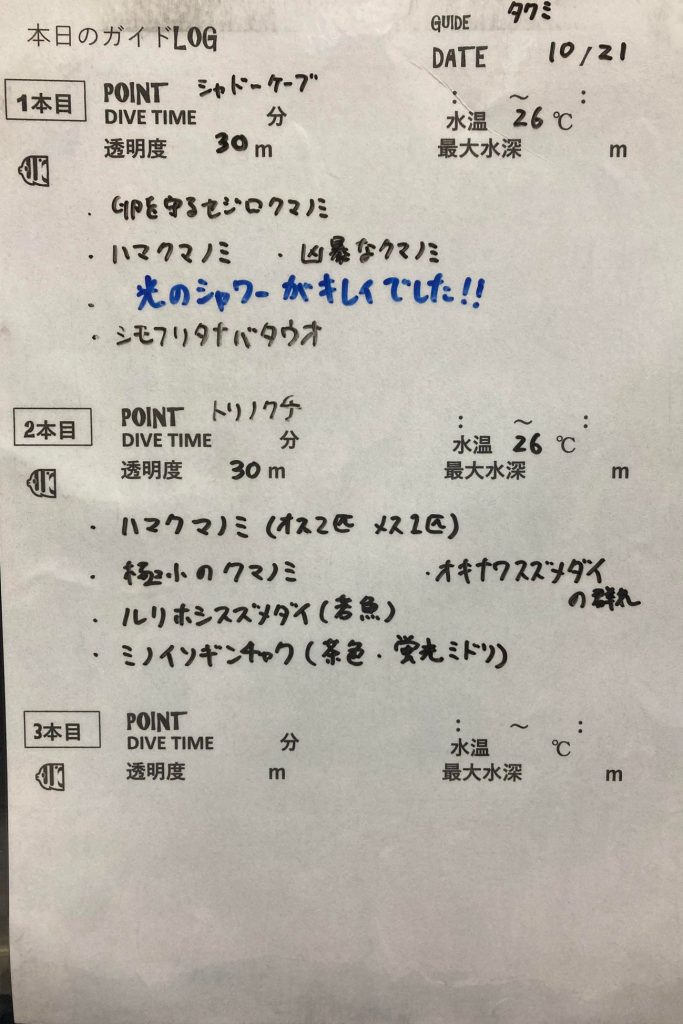 本日のガイドLOG
GUIDE タクミ
DATE 10/21
1本目 POINT シャドーケーブ : ～ :
DIVE TIME 分 水温 26 ℃
透明度 30 m 最大水深 m
・卵を守るセジロクマノミ
・ハマクマノミ ・凶暴なクマノミ
・光のシャワーがキレイでした!!
・シモフリタナバタウオ
2本目 POINT トリノクチ : ～ :
DIVE TIME 分 水温 26 ℃
透明度 30 m 最大水深 m
・ハマクマノミ (オス2匹 メス1匹)
・極小のクマノミ ・オキナワスズメダイ
の群れ
・ルリホシスズメダイ (若魚)
・ミノイソギンチャク (茶色・蛍光ミドリ)
3本目 POINT : ～ :
DIVE TIME 分 水温 ℃
透明度 m 最大水深 m